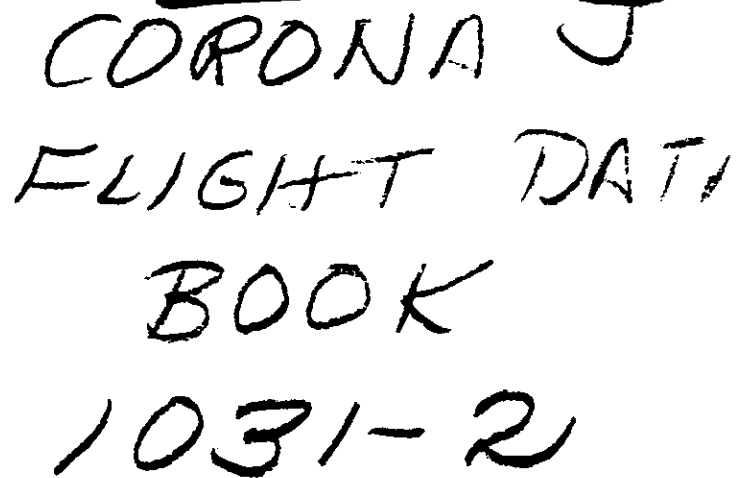 CORONA J
FLIGHT DATA
BOOK
1031-2